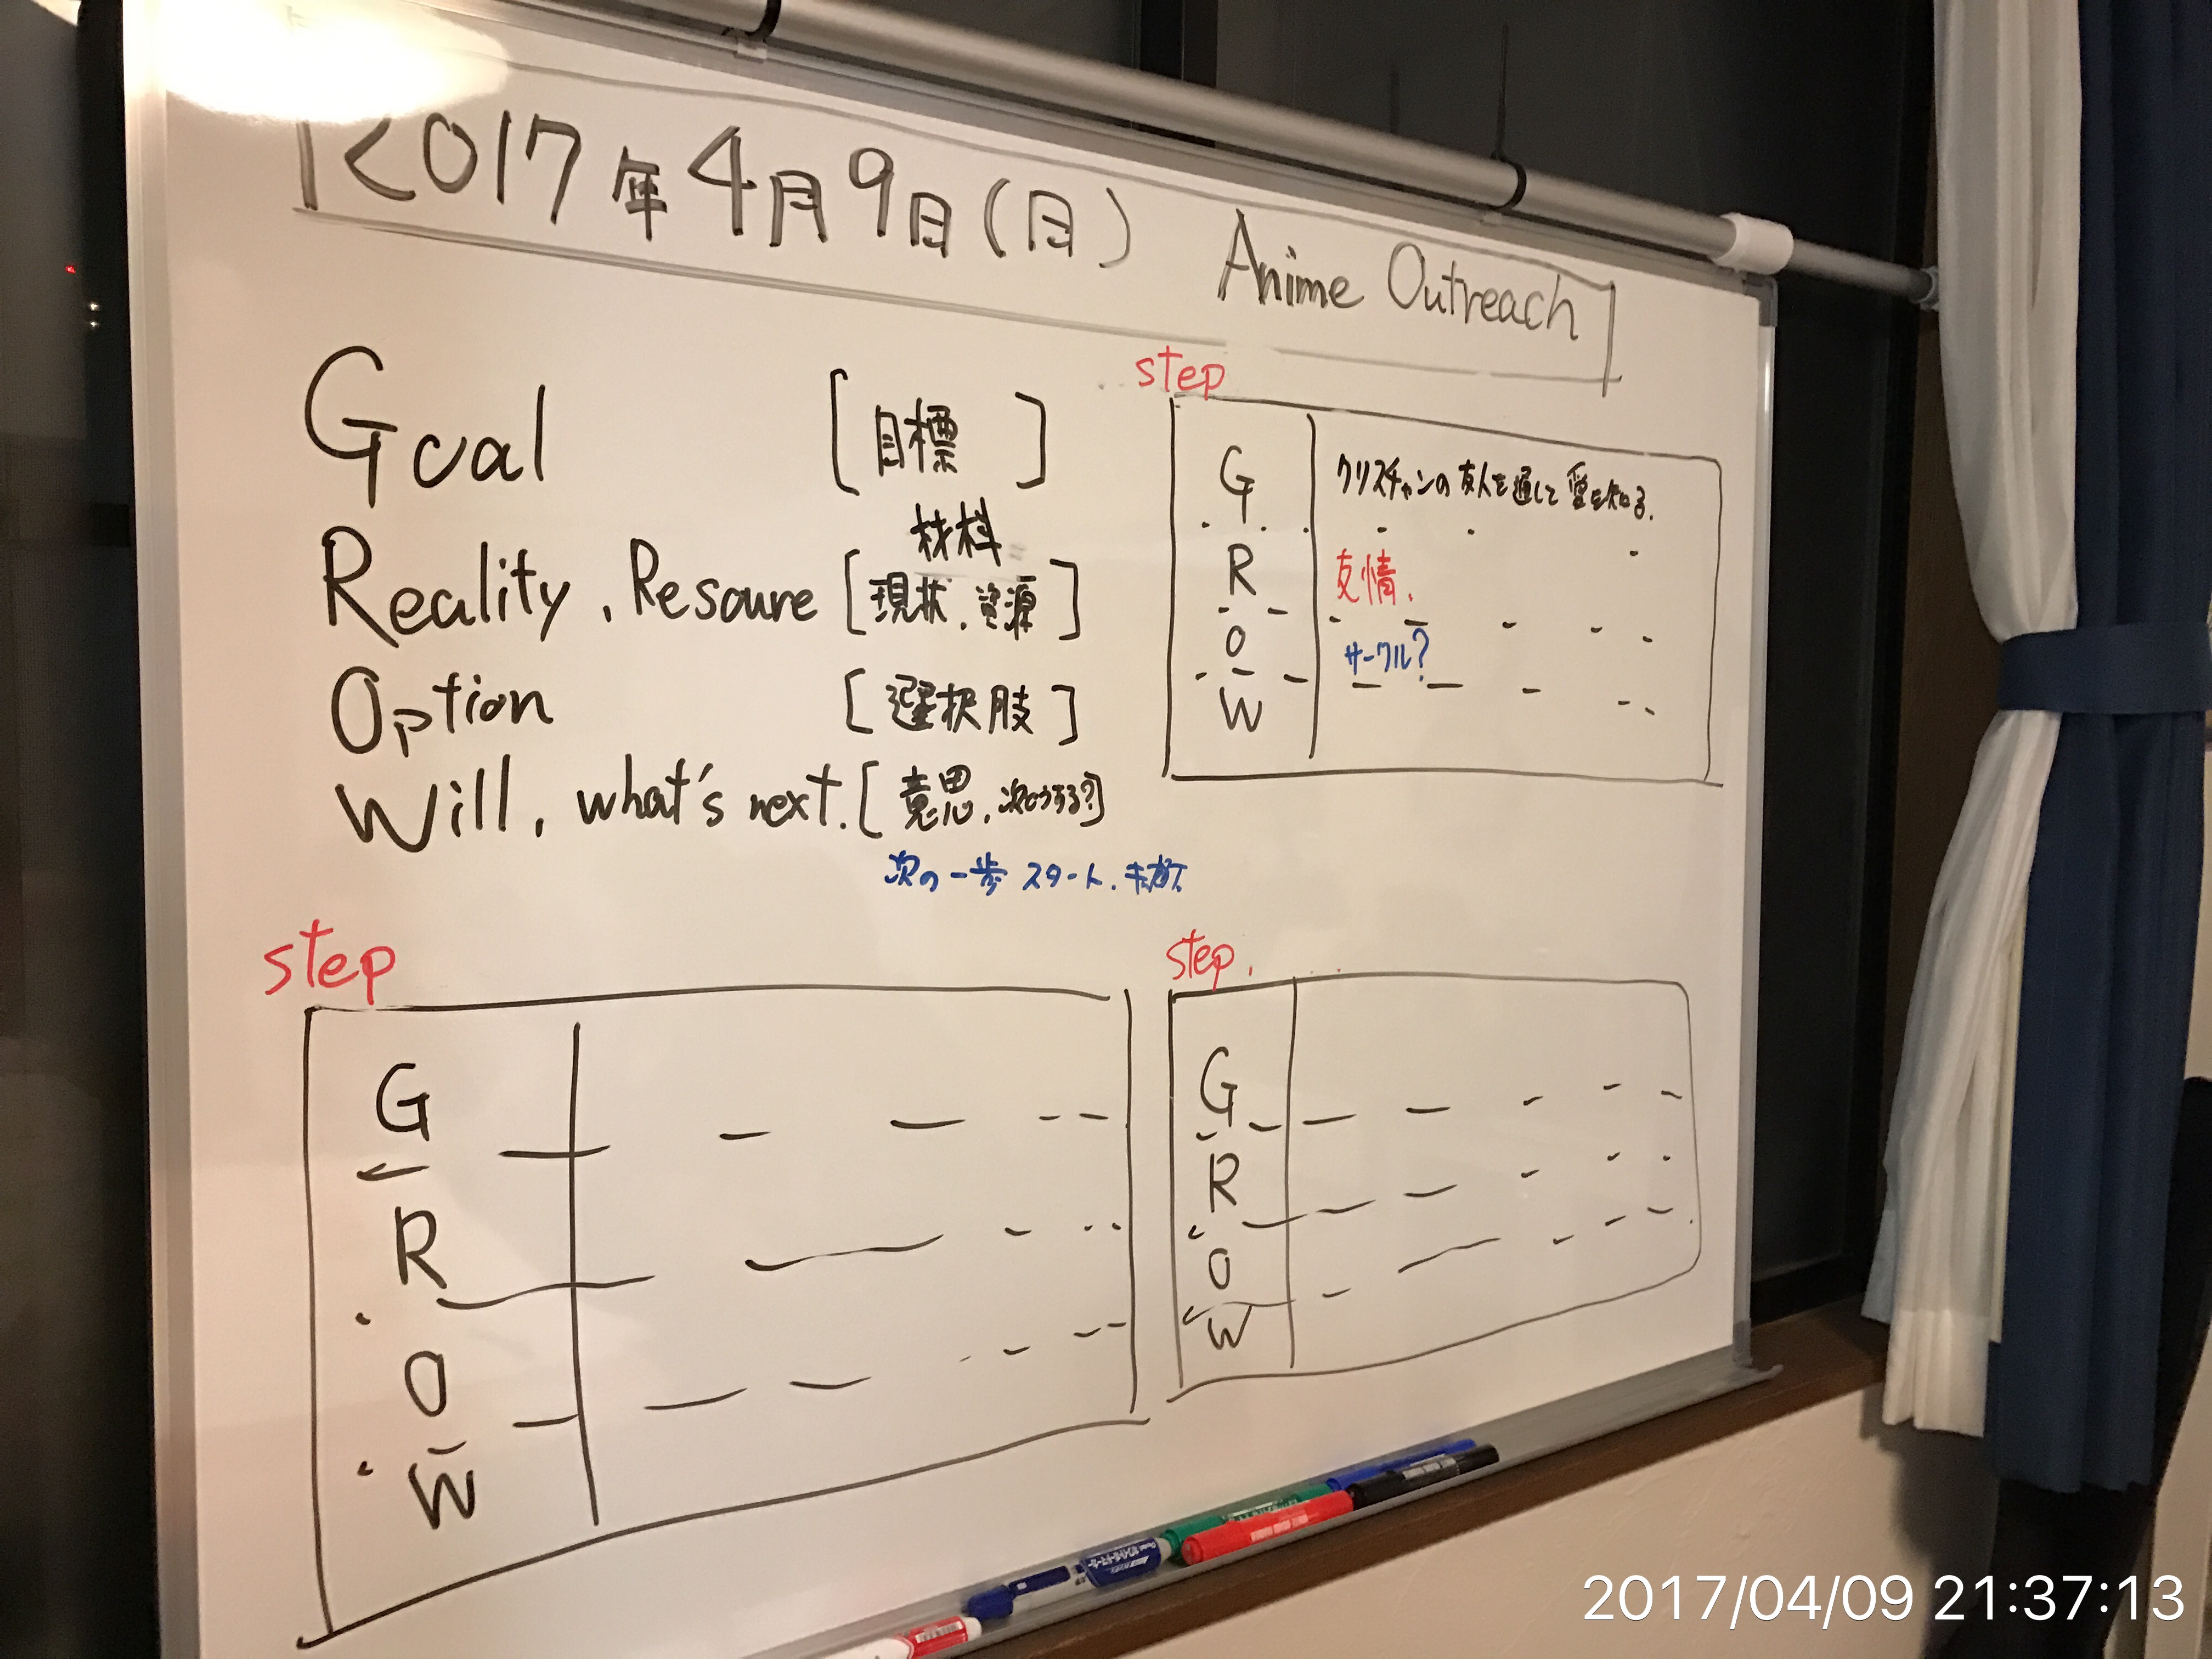 2017年4月9日(日) Anime Outreach
Goal [目標]
材料
Reality, Resoure [現状, 資源]
Option [選択肢]
Will, what's next. [意思, 次どうする?]
次の一歩 スタート.
step
G クリスチャンの友人を通して愛を知る.
R 友情.
O サークル?
W
step
G
R
O
W
step.
G
R
O
W
2017/04/09 21:37:13